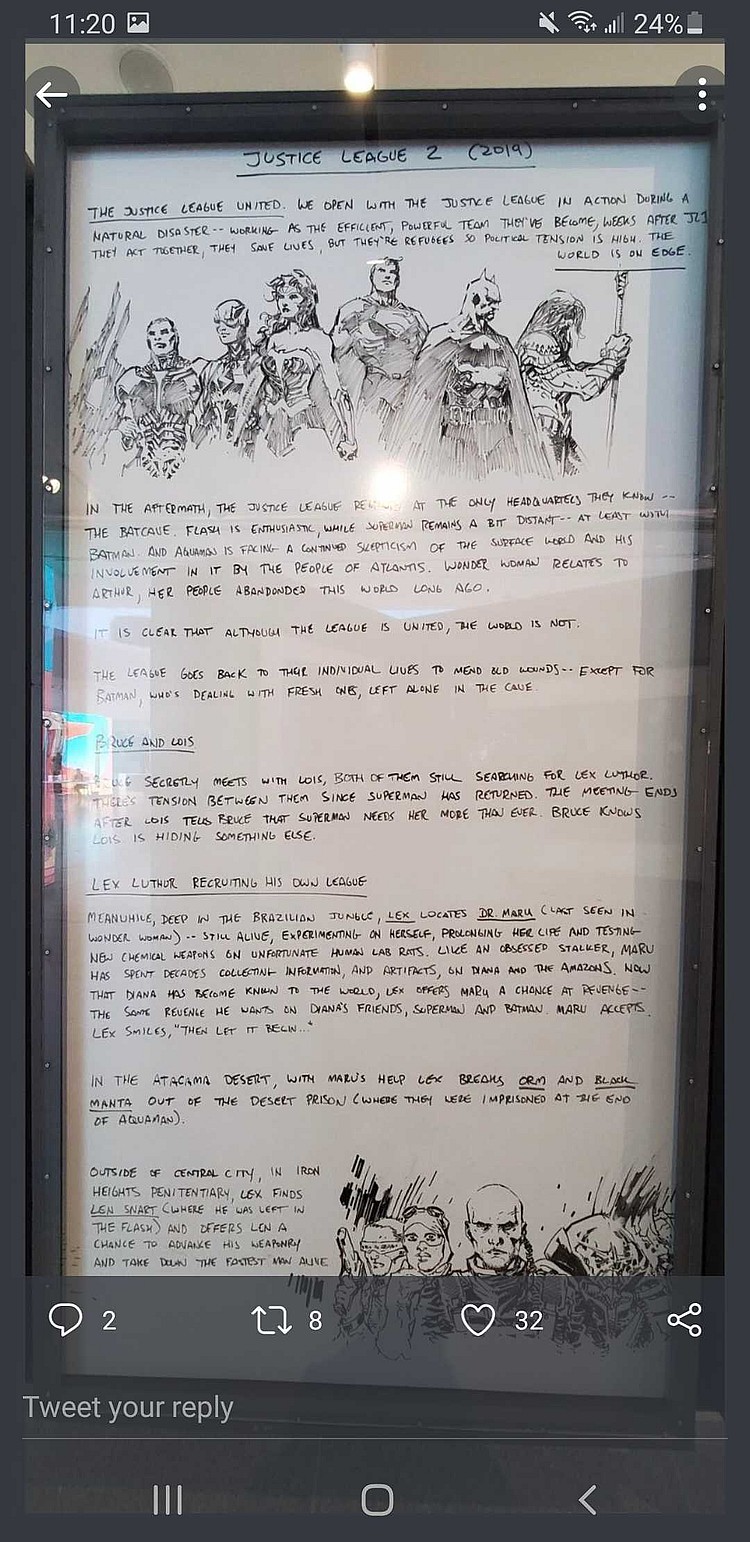 11:20
24%
JUSTICE LEAGUE 2 (2019)
THE JUSTICE LEAGUE UNITED. WE OPEN WITH THE JUSTICE LEAGUE IN ACTION DURING A
NATURAL DISASTER-- WORKING AS THE EFFICIENT, POWERFUL TEAM THEY'VE BECOME, WEEKS AFTER JL1
THEY ACT TOGETHER, THEY SAVE LIVES, BUT THEY'RE REFUGEES SO POLITICAL TENSION IS HIGH. THE
WORLD IS ON EDGE.
IN THE AFTERMATH, THE JUSTICE LEAGUE AT THE ONLY HEADQUARTERS THEY KNOW --
THE BATCAVE. FLASH IS ENTHUSIASTIC, WHILE SUPERMAN REMAINS A BIT DISTANT-- AT LEAST WITH
BATMAN. AND AQUAMAN IS FACING A CONTINUED SKEPTICISM OF THE SURFACE WORLD AND HIS
INVOLVEMENT IN IT BY THE PEOPLE OF ATLANTIS. WONDER WOMAN RELATES TO
ARTHUR, HER PEOPLE ABANDONDED THIS WORLD LONG AGO.
IT IS CLEAR THAT ALTHOUGH THE LEAGUE IS UNITED, THE WORLD IS NOT.
THE LEAGUE GOES BACK TO THEIR INDIVIDUAL LIVES TO MEND OLD WOUNDS-- EXCEPT FOR
BATMAN, WHO'S DEALING WITH FRESH ONES, LEFT ALONE IN THE CAVE.
BRUCE AND LOIS
BRUCE SECRETLY MEETS WITH LOIS, BOTH OF THEM STILL SEARCHING FOR LEX LUTHOR.
THERE'S TENSION BETWEEN THEM SINCE SUPERMAN HAS RETURNED. THE MEETING ENDS
AFTER LOIS TELLS BRUCE THAT SUPERMAN NEEDS HER MORE THAN EVER. BRUCE KNOWS
LOIS IS HIDING SOMETHING ELSE.
LEX LUTHOR RECRUITING HIS OWN LEAGUE
MEANWHILE, DEEP IN THE BRAZILIAN JUNGLE, LEX LOCATES DR. MARU (LAST SEEN IN
WONDER WOMAN) -- STILL ALIVE, EXPERIMENTING ON HERSELF, PROLONGING HER LIFE AND TESTING
NEW CHEMICAL WEAPONS ON UNFORTUNATE HUMAN LAB RATS. LIKE AN OBSESSED STALKER, MARU
HAS SPENT DECADES COLLECTING INFORMATION, AND ARTIFACTS, ON DIANA AND THE AMAZONS. NOW
THAT DIANA HAS BECOME KNOWN TO THE WORLD, LEX OFFERS MARU A CHANCE AT REVENGE--
THE SAME REVENGE HE WANTS ON DIANA'S FRIENDS, SUPERMAN AND BATMAN. MARU ACCEPTS.
LEX SMILES, "THEN LET IT BEGIN..."
IN THE ATACAMA DESERT, WITH MARU'S HELP LEX BREAKS ORM AND BLACK
MANTA OUT OF THE DESERT PRISON (WHERE THEY WERE IMPRISONED AT THE END
OF AQUAMAN).
OUTSIDE OF CENTRAL CITY, IN IRON
HEIGHTS PENITENTIARY, LEX FINDS
LEN SNART (WHERE HE WAS LEFT IN
THE FLASH) AND OFFERS LEN A
CHANCE TO ADVANCE HIS WEAPONRY
AND TAKE DOWN THE FASTEST MAN ALIVE
2
8
32
Tweet your reply